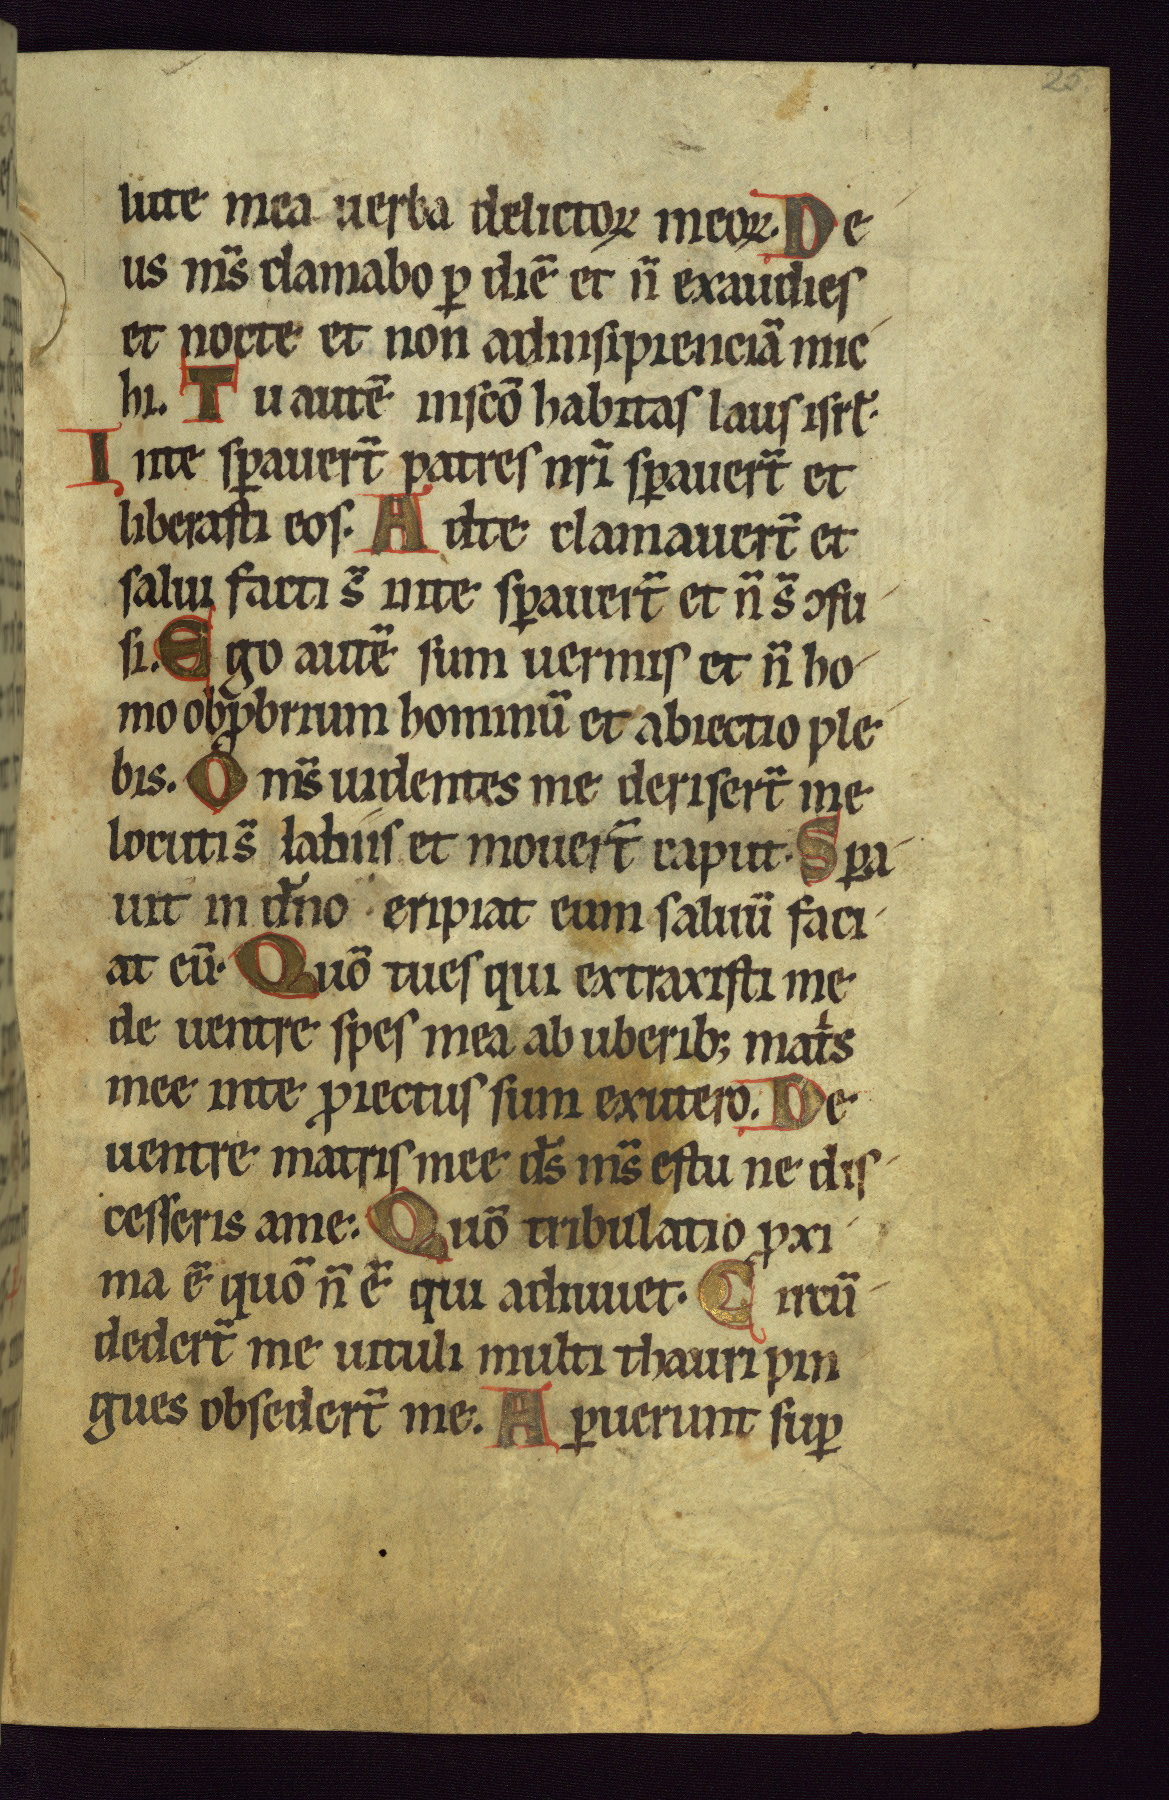 25.
lute mea uerba delictoꝝ meoꝝ. De
us m̅s clamabo ꝑ die̅ et n̅ exaudies
et nocte et non adinsipiencia̅ mic
hi. Tu aute̅ insc̅o habitas laus isrl̅.
Inte sꝑauer̅t patres nr̅i sꝑauer̅t et
liberasti eos. Adte clamauer̅t et
salui facti s̅ inte sꝑauer̅t et n̅ s̅ ↄfu
si. Ego aute̅ sum uermis et n̅ ho
mo obꝓbrium hominu̅ et abiectio ple
bis. Om̅s uidentes me deriser̅t me
locuti s̅ labiis et mouer̅t caput. Sꝑa
uit in dn̅o eripiat eum saluu̅ faci
at eu̅. Quo̅ tues qui extraxisti me
de uentre spes mea ab uberib; mat̅s
mee inte ꝓiectus sum exutero. De
uentre matris mee ds̅ m̅s estu ne dis
cesseris ame. Quo̅ tribulatio ꝓxi
ma e̅ quo̅ n̅ e̅ qui adiuuet. Circu̅
deder̅t me uituli multi thauri pin
gues obseder̅t me. Aꝑuerunt suꝑ